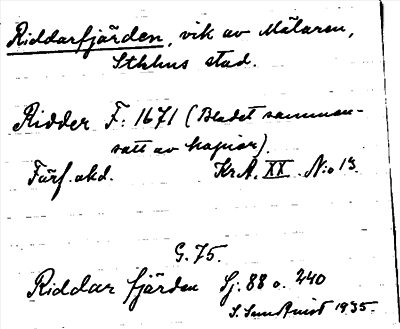 Riddarfjärden, vik av Mälaren,
Sthlms stad.
Ridder F: 1671 (Bladet samman-
satt av kopior).
Förf. okd. Kr.A. XX. N:o 13.
G. 75.
Riddar fjärden Sj. 88 o. 240
S. Sundkvist 1935.